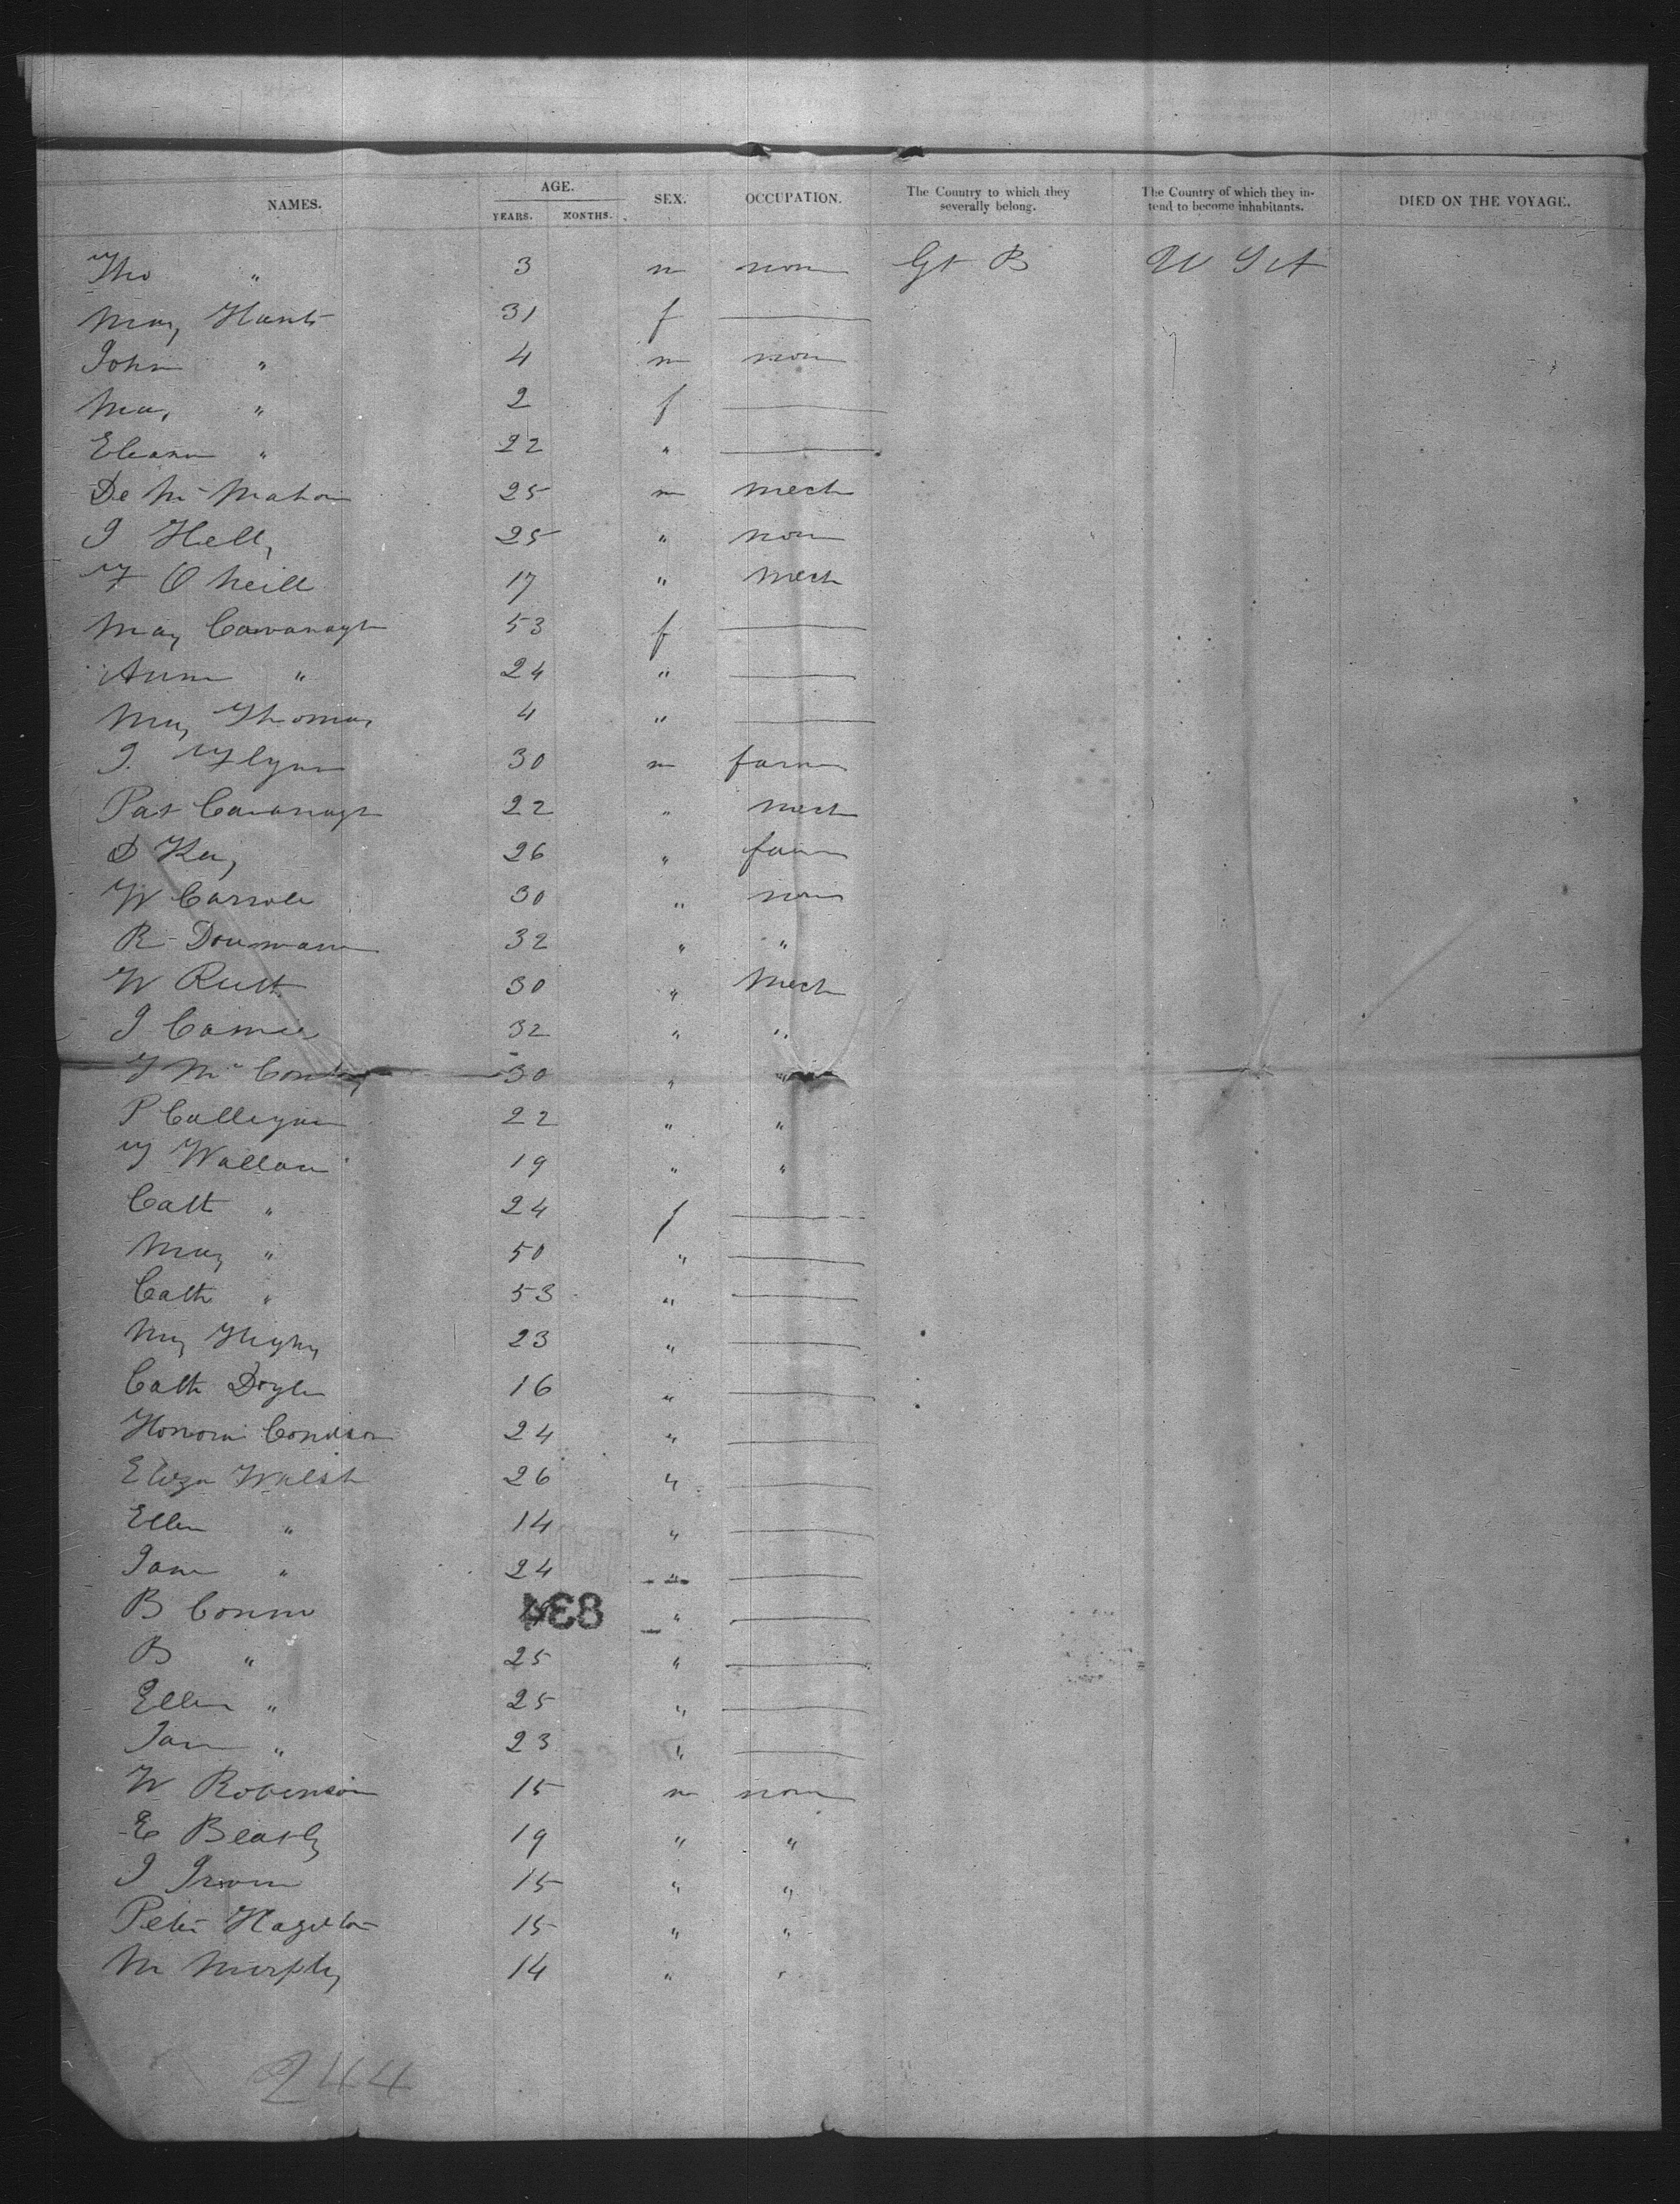 NAMES. AGE. SEX. OCCUPATION. The Country to which they severally belong. The Country of which they intend to become inhabitants. DIED ON THE VOYAGE.
YEARS. MONTHS.
Tho " 3 m non Gt B U S A
Mary 31 f
John " 4 m non
Mary " 2 f
Eleanor " 22 "
Mc Mahon 25 m Mech
J Kelly 25 " non
F O Neill 17 " Mech
Mary Cavanagh 53 f
Ann " 24 "
Mary Thomas 4 "
J. Flynn 30 m farm
Pat Cavanagh 22 " Mech
D 26 " farm
W Carroll 30 " non
R 32 " "
W 30 " Mech
J 32 " "
Mc 30 " "
P 22 " "
Wallace 19 " "
Cath " 24 f
Mary " 50 "
Cath " 53 "
Mary 23 "
Cath Doyle 16 "
Honora 24 "
Eliza Walsh 26 "
Ellen " 14 "
Jane " 24 "
B Connor "
B " 25 "
Ellen " 25 "
Jane " 23 "
W Robinson 15 m non
E 19 " "
J Irwin 15 " "
Peter 15 " "
M Murphy 14 " "
834
244